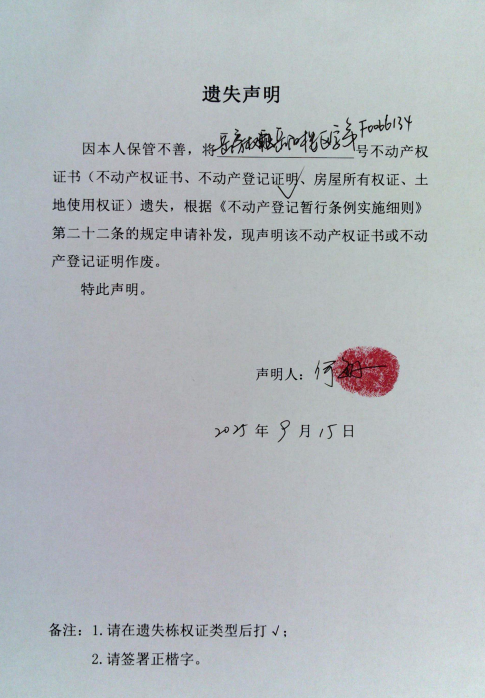 遗失声明
因本人保管不善，将岳房权证岳阳楼区字第F0066134号不动产权
证书（不动产权证书、不动产登记证明、房屋所有权证、土
地使用权证）遗失，根据《不动产登记暂行条例实施细则》
第二十二条的规定申请补发，现声明该不动产权证书或不动
产登记证明作废。
特此声明。
声明人：何
2025年9月15日
备注：1.请在遗失栋权证类型后打√；
2.请签署正楷字。